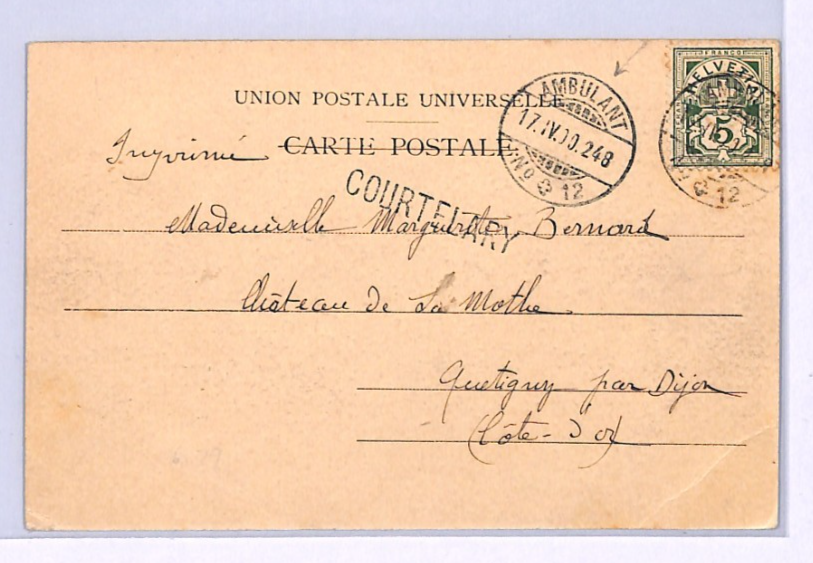 FRANCO
HELVETIA
5
UNION POSTALE UNIVERSELLE
AMBULANT
17.IV.00.248
No 12
Imprimé CARTE POSTALE
COURTELARY
Mademoiselle Marguerite Bernard
Château de La Mothe
Quetigny par Dijon
(Côte-d'or)
AMBULANT
12